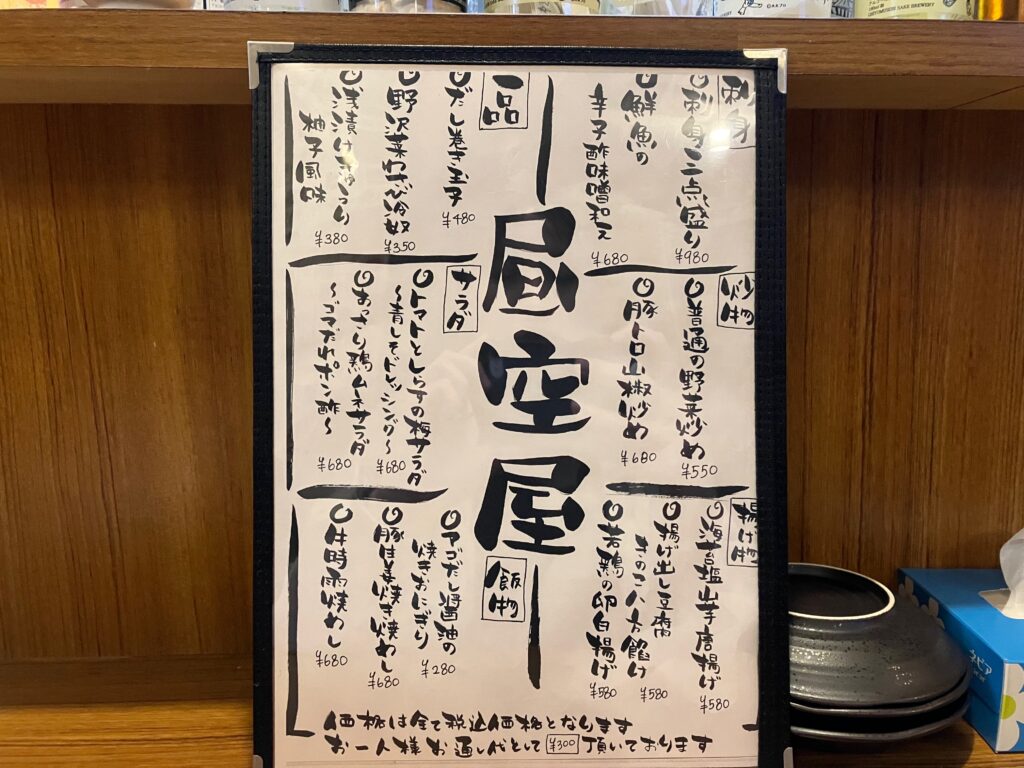 刺身
刺身三点盛り
¥980
鮮魚の
辛子酢味噌和え
¥680
炒物
普通の野菜炒め
¥550
豚トロ山椒炒め
¥680
揚げ物
海苔塩山芋唐揚げ
¥580
揚げ出し豆腐
きのこ八方餡け
¥580
若鶏の卵白揚げ
¥580
昼空屋
一品
だし巻き玉子
¥480
野沢菜わさび冷奴
¥350
浅漬けきゅうり
柚子風味
¥380
サラダ
トマトとしらすの梅サラダ
〜青しそドレッシング〜
¥680
あっさり鶏ムネサラダ
〜ゴマだれポン酢〜
¥680
飯物
アゴだし醤油の
焼きおにぎり
¥280
豚生姜焼き焼めし
¥680
牛時雨焼めし
¥680
価格は全て税込価格となります
お一人様お通し代として¥300頂いております
ネピア